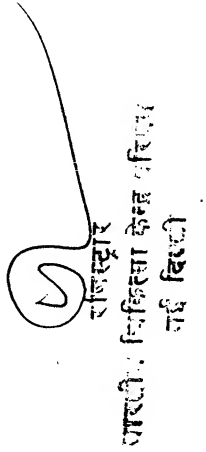 राजस्ट्रार
चिकित्सा केन्द्र परिषद
नई दिल्ली